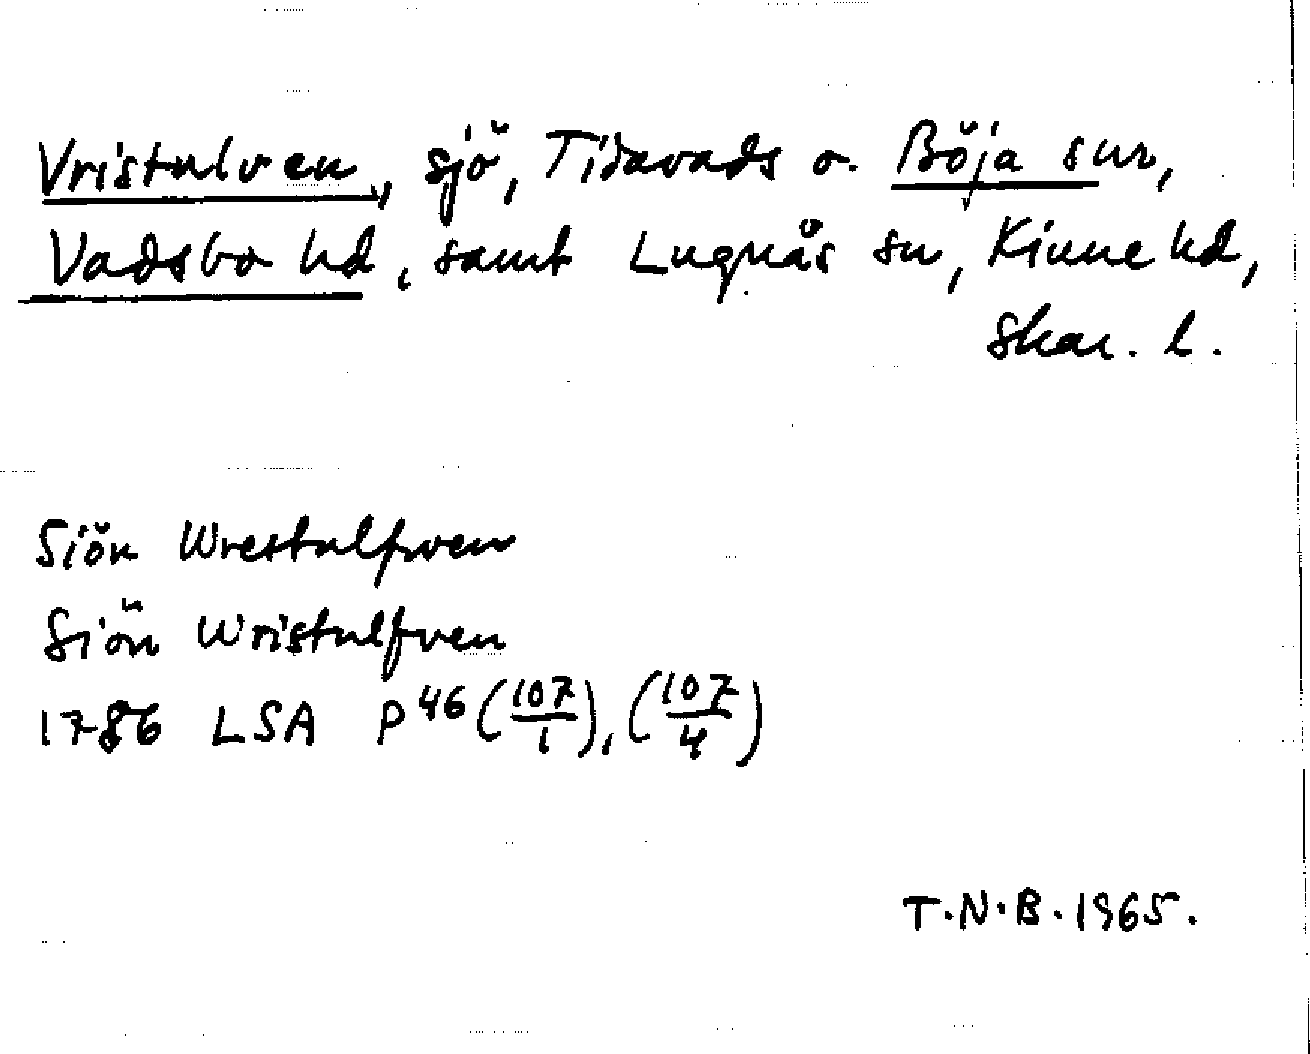 Vristulven, sjö, Tidavads o. Böja snr,
Vadsbo hd, samt Lugnås sn, Kinne hd,
Skar. l.
Siön Wrestulfven
Siön Wristulfven
1786 LSA P46 (107/1), (107/4)
T.N.B. 1965.